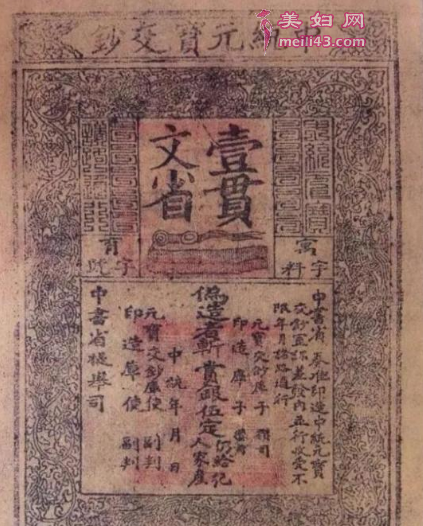 美妇网
meili43.com
中統元寶交鈔
壹貫
文省
字料
字號
中書省 奏准印造中統元寶
交鈔宣課差發內並行收受不
限年月諸路通行
元寶交鈔庫子 攢司
印造庫子 攢司
偽造者斬 賞銀伍定 仍給犯
人家產
中統 年 月 日
元寶交鈔庫使 副判
印造庫使 副判
中書省提舉司